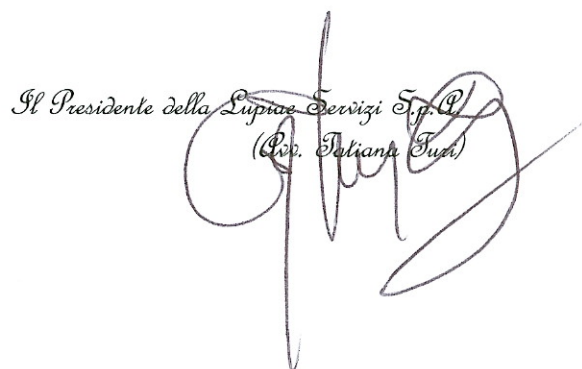 Il Presidente della Lupiae Servizi S.p.A.
(Avv. Tatiana Turi)